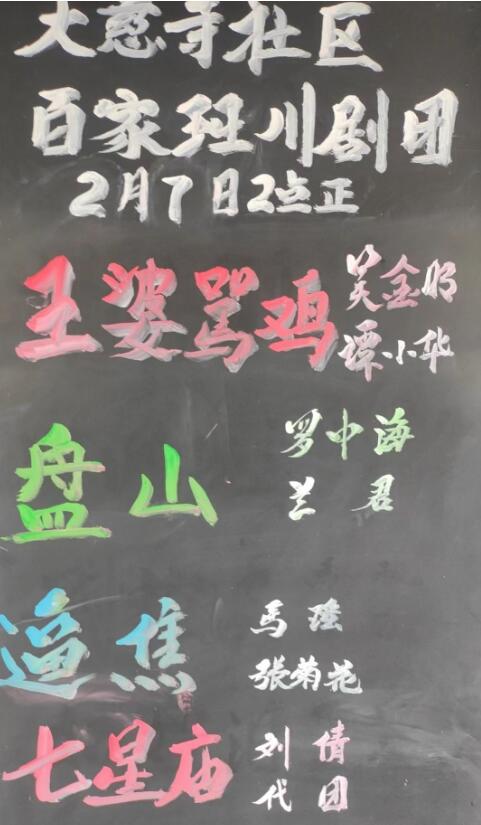 大慈寺社区
百家班川剧团
2月7日2点正
王婆骂鸡
吴金明
谭小华
盘山
罗中海
兰君
逼焦
马瑶
张菊花
七星庙
刘倩
代团